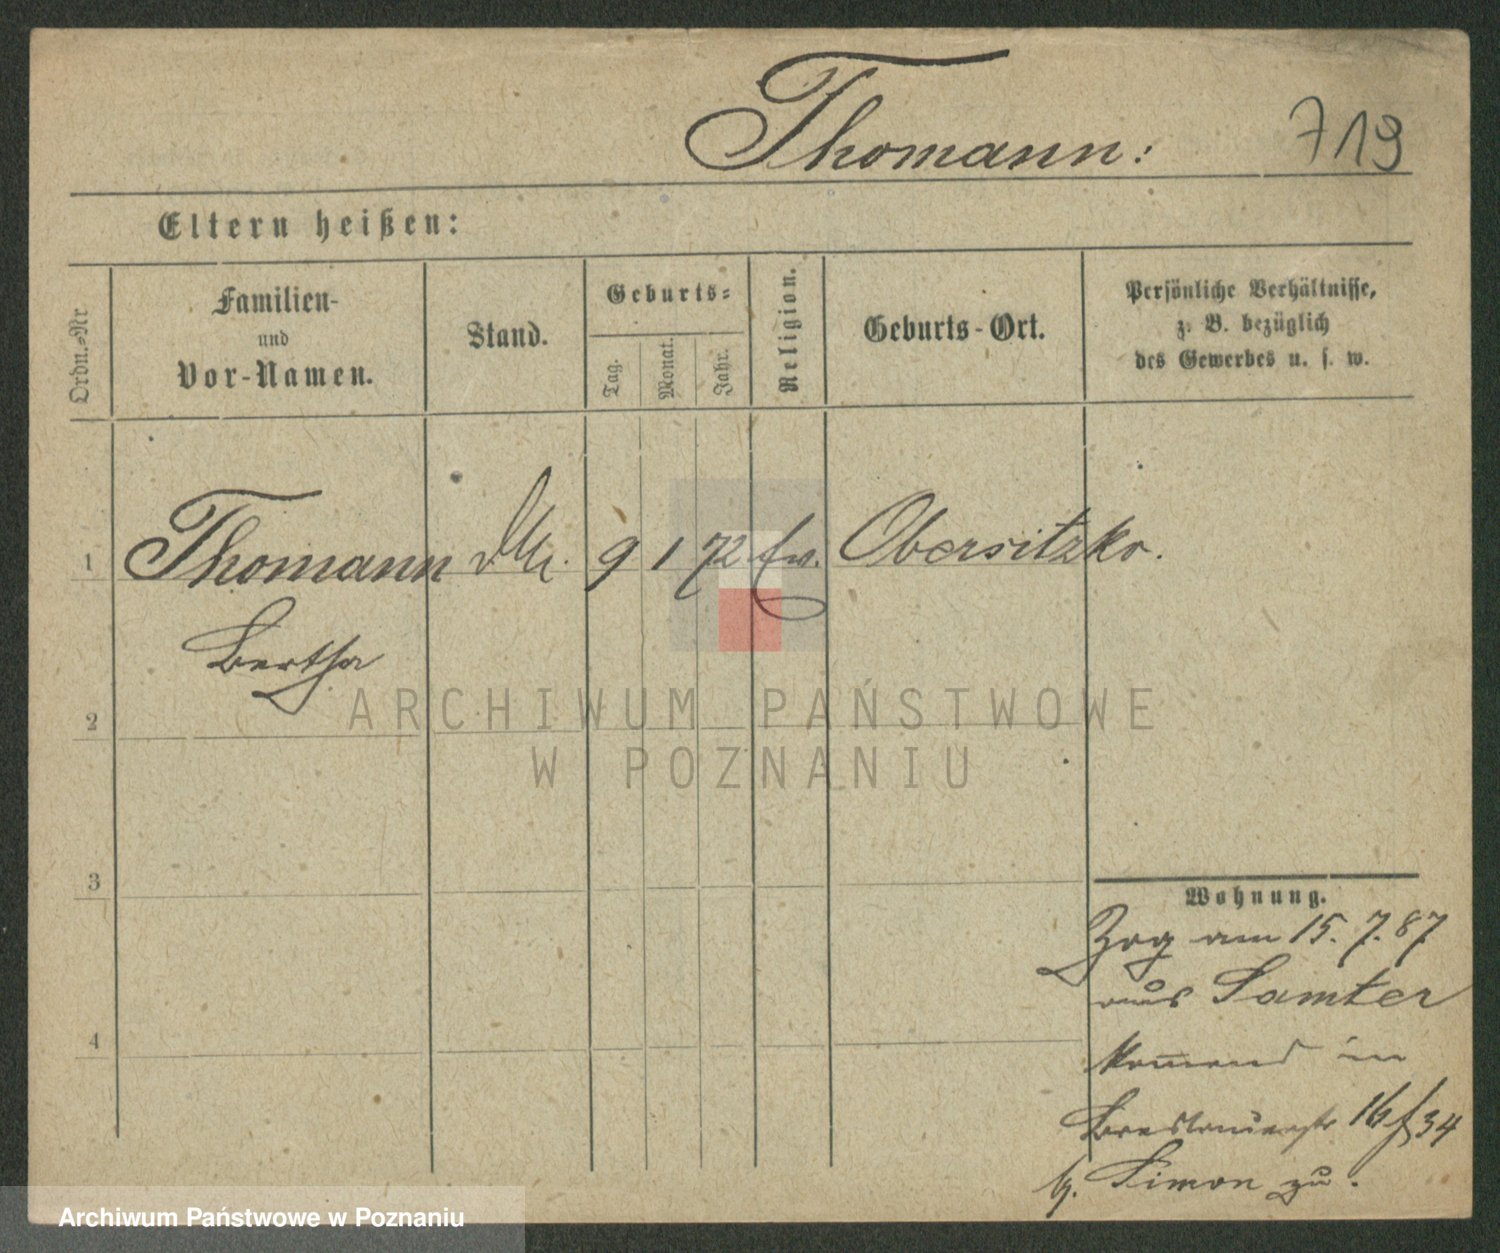 Thomann: 719
Eltern heißen:
Ordn.-Nr
Familien-
und
Vor-Namen.
Stand.
Geburts-
Tag.
Monat.
Jahr.
Religion.
Geburts-Ort.
Persönliche Verhältnisse,
z. B. bezüglich
des Gewerbes u. s. w.
1 Thomann 9 1 72 Obersitzko.
Bertha
2
3
4
Wohnung.
Zog am 15. 7. 87
aus Samter
kom̄end in
Breslauerstr 16 34
b. Simon zu.
ARCHIWUM PAŃSTWOWE
W POZNANIU
Archiwum Państwowe w Poznaniu